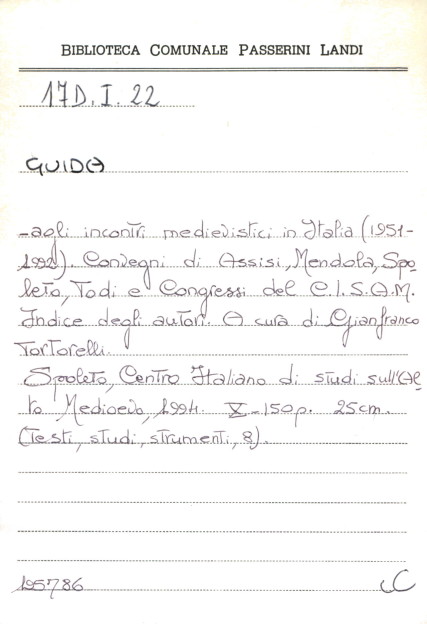 BIBLIOTECA COMUNALE PASSERINI LANDI
17D. I. 22
GUIDA
-agli incontri medievistici in Italia (1951-
1992). Convegni di Assisi, Mendola, Spo
leto, Todi e Congressi del C.I.S.A.M.
Indice degli autori. A cura di Gianfranco
Tortorelli.
Spoleto, Centro Italiano di studi sull'Al
to Medioevo, 1994. X-150p. 25cm.
(Testi, studi, strumenti, 8).
195786